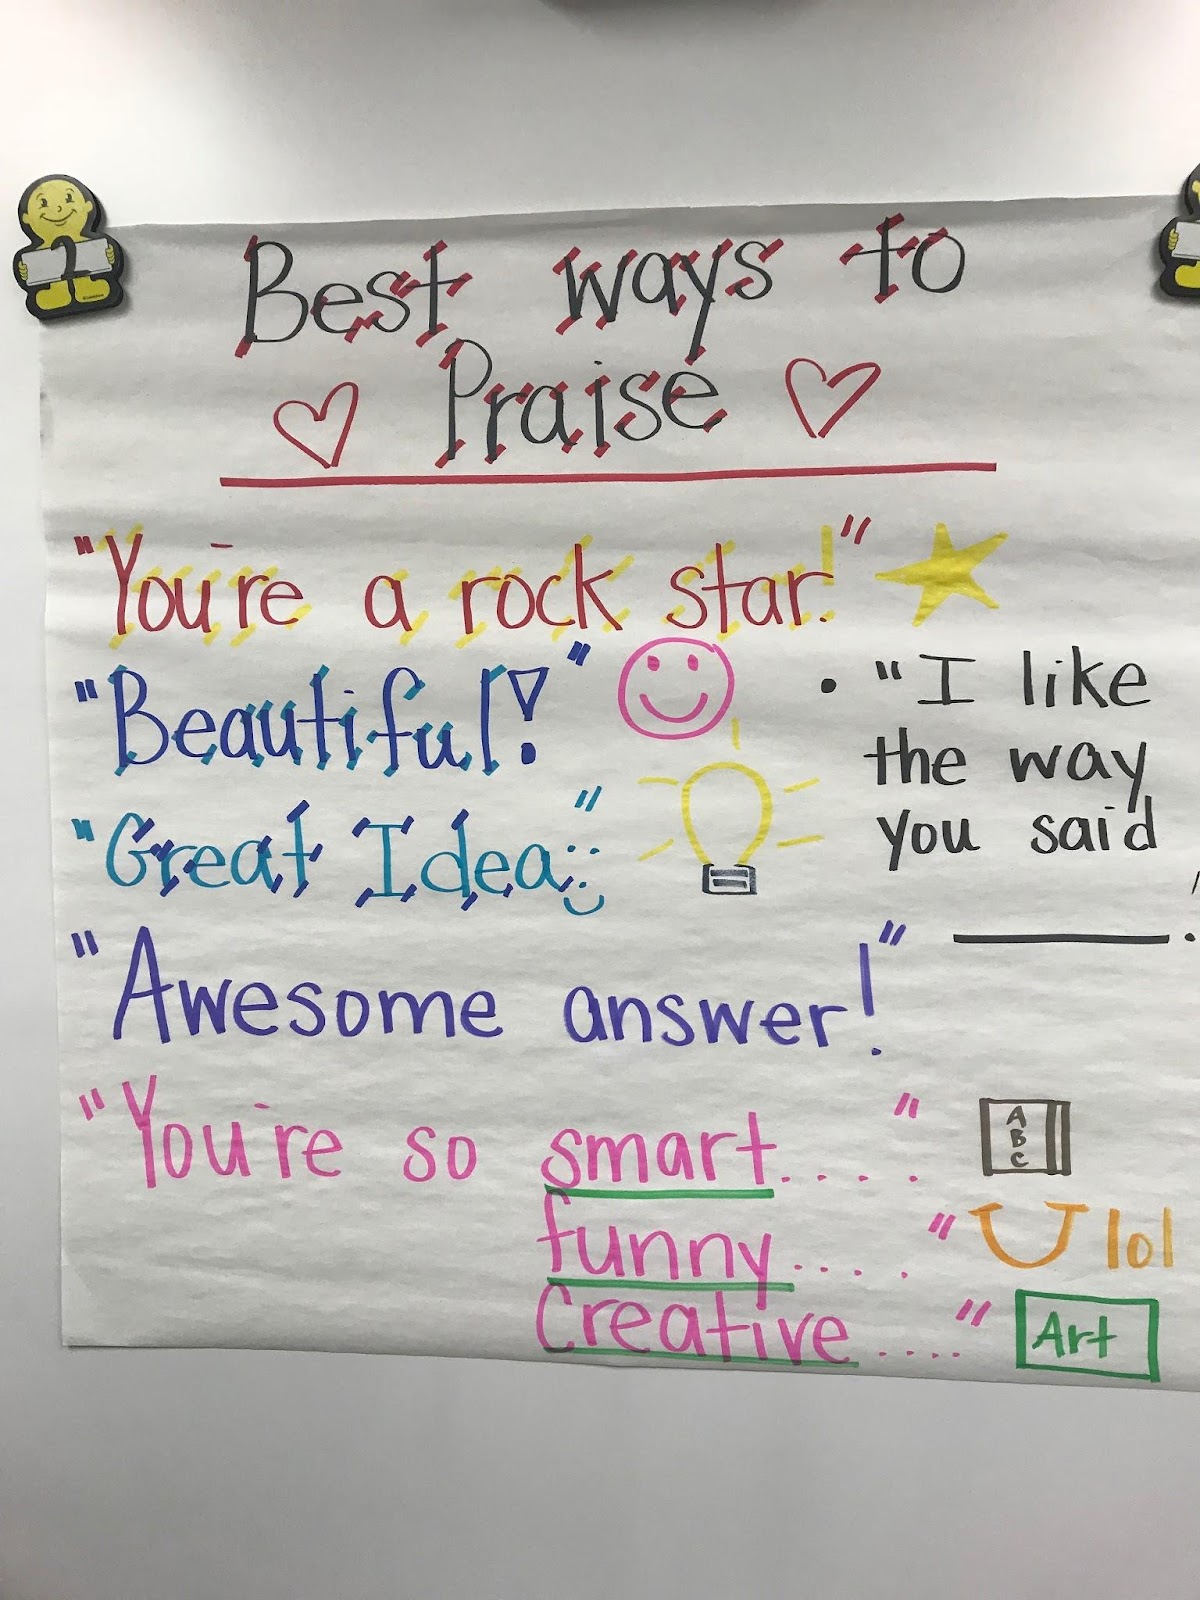 Best ways to
Praise
"You're a rock star!"
"Beautiful!"
"Great Idea!"
"Awesome answer!"
"You're so smart....."
funny...."
Creative...."
• "I like
the way
you said
______.
A
B
C
lol
Art
2